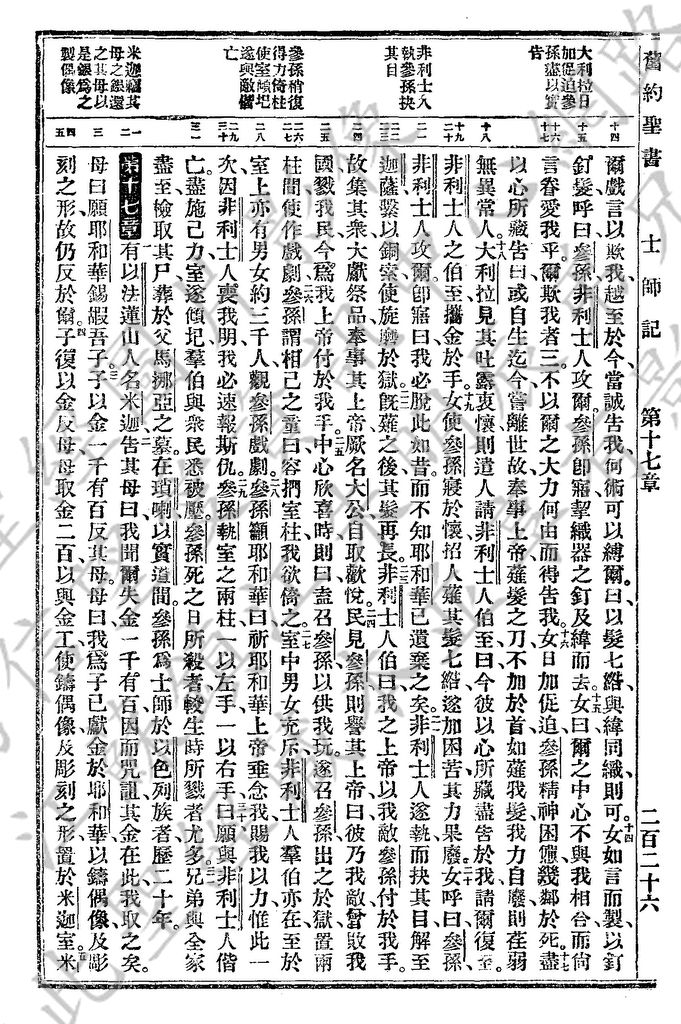 舊約聖書 士師記 第十七章 二百二十六
大利拉日
加促迫參
孫盡以實
告
非利士人
執參孫抉
其目
參孫稍復
得力倚柱
使室傾圮
遂與敵偕
亡
米迦竊其
母之銀還
之其母以
是銀爲之
製偶像
十四
十五
十六
十七
十八
十九
二十
二一
二二
二三
二四
二五
二六
二七
二八
二九
三十
三一
一
二
三
四
五
爾戲言以欺我越至於今當誠告我何術可以縛爾曰以髮七綹與緯同織則可十四女如言而製以釘
釘髮呼曰參孫非利士人攻爾參孫卽寤挈織器之釘及緯而去十五女曰爾之中心不與我相合而尚
言眷愛我乎爾欺我者三不以爾之大力何由而得告我十六女日加促迫參孫精神困憊幾鄰於死十七盡
以心所藏告曰或自生迄今嘗離世故奉事上帝薙髮之刀不加於首如薙我髮我力自廢則荏弱
無異常人十八大利拉見其吐露衷懷則遣人請非利士人伯至曰今彼以心所藏盡告於我請爾復至
非利士人之伯至攜金於手十九女使參孫寢於懷招人薙其髮七綹遂加困苦其力果廢二十女呼曰參孫
非利士人攻爾卽寤曰我必脫此如昔而不知耶和華已遺棄之矣二一非利士人遂執而抉其目解至
迦薩繫以銅索使旋磨於獄二二旣薙之後其髮再長二三非利士人伯曰我之上帝以我敵參孫付於我手
故集其衆大獻祭品奉事其上帝厥名大公自取歡悅二四民見參孫則譽其上帝曰彼乃我敵曾敗我
國戮我民今爲我上帝付於我手二五中心欣喜時則曰盍召參孫以供我玩遂召參孫出之於獄置兩
柱間使作戲劇二六參孫謂相己之童曰容捫室柱我欲倚之二七室中男女充斥非利士人羣伯亦在至於
室上亦有男女約三千人觀參孫戲劇二八參孫籲耶和華曰祈耶和華上帝垂念我賜我以力惟此一
次因非利士人喪我明我必速報斯仇二九參孫執室之兩柱一以左手一以右手三十曰願與非利士人偕
亡盡施己力室遂傾圮羣伯與衆民悉被壓參孫死之日所殺者較生時所戮者尤多三一兄弟與全家
盡至檢取其尸葬於父馬挪亞之墓在瑣喇以實道間參孫爲士師於以色列族者歷二十年
第十七章 有以法蓮山人名米迦二告其母曰我聞爾失金一千有百因而咒詛其金在此我取之矣
母曰願耶和華錫嘏吾子三子以金一千有百反其母母曰我爲子已獻金於耶和華以鑄偶像及彫
刻之形故仍反於爾四子復以金反母母取金二百以與金工使鑄偶像及彫刻之形置於米迦室五米